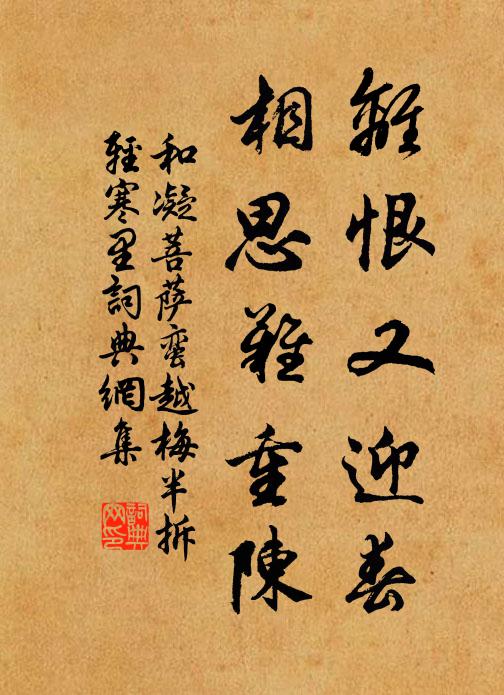 離恨又迎春
相思難重陳
和凝菩薩蛮越梅半拆
輕寒里詞典網集
詞典网印